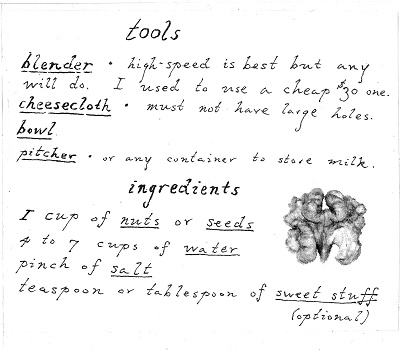 tools
blender • high-speed is best but any
will do. I used to use a cheap $30 one.
cheesecloth • must not have large holes.
bowl
pitcher • or any container to store milk.
ingredients
1 cup of nuts or seeds
4 to 7 cups of water
pinch of salt
teaspoon or tablespoon of sweet stuff
(optional)